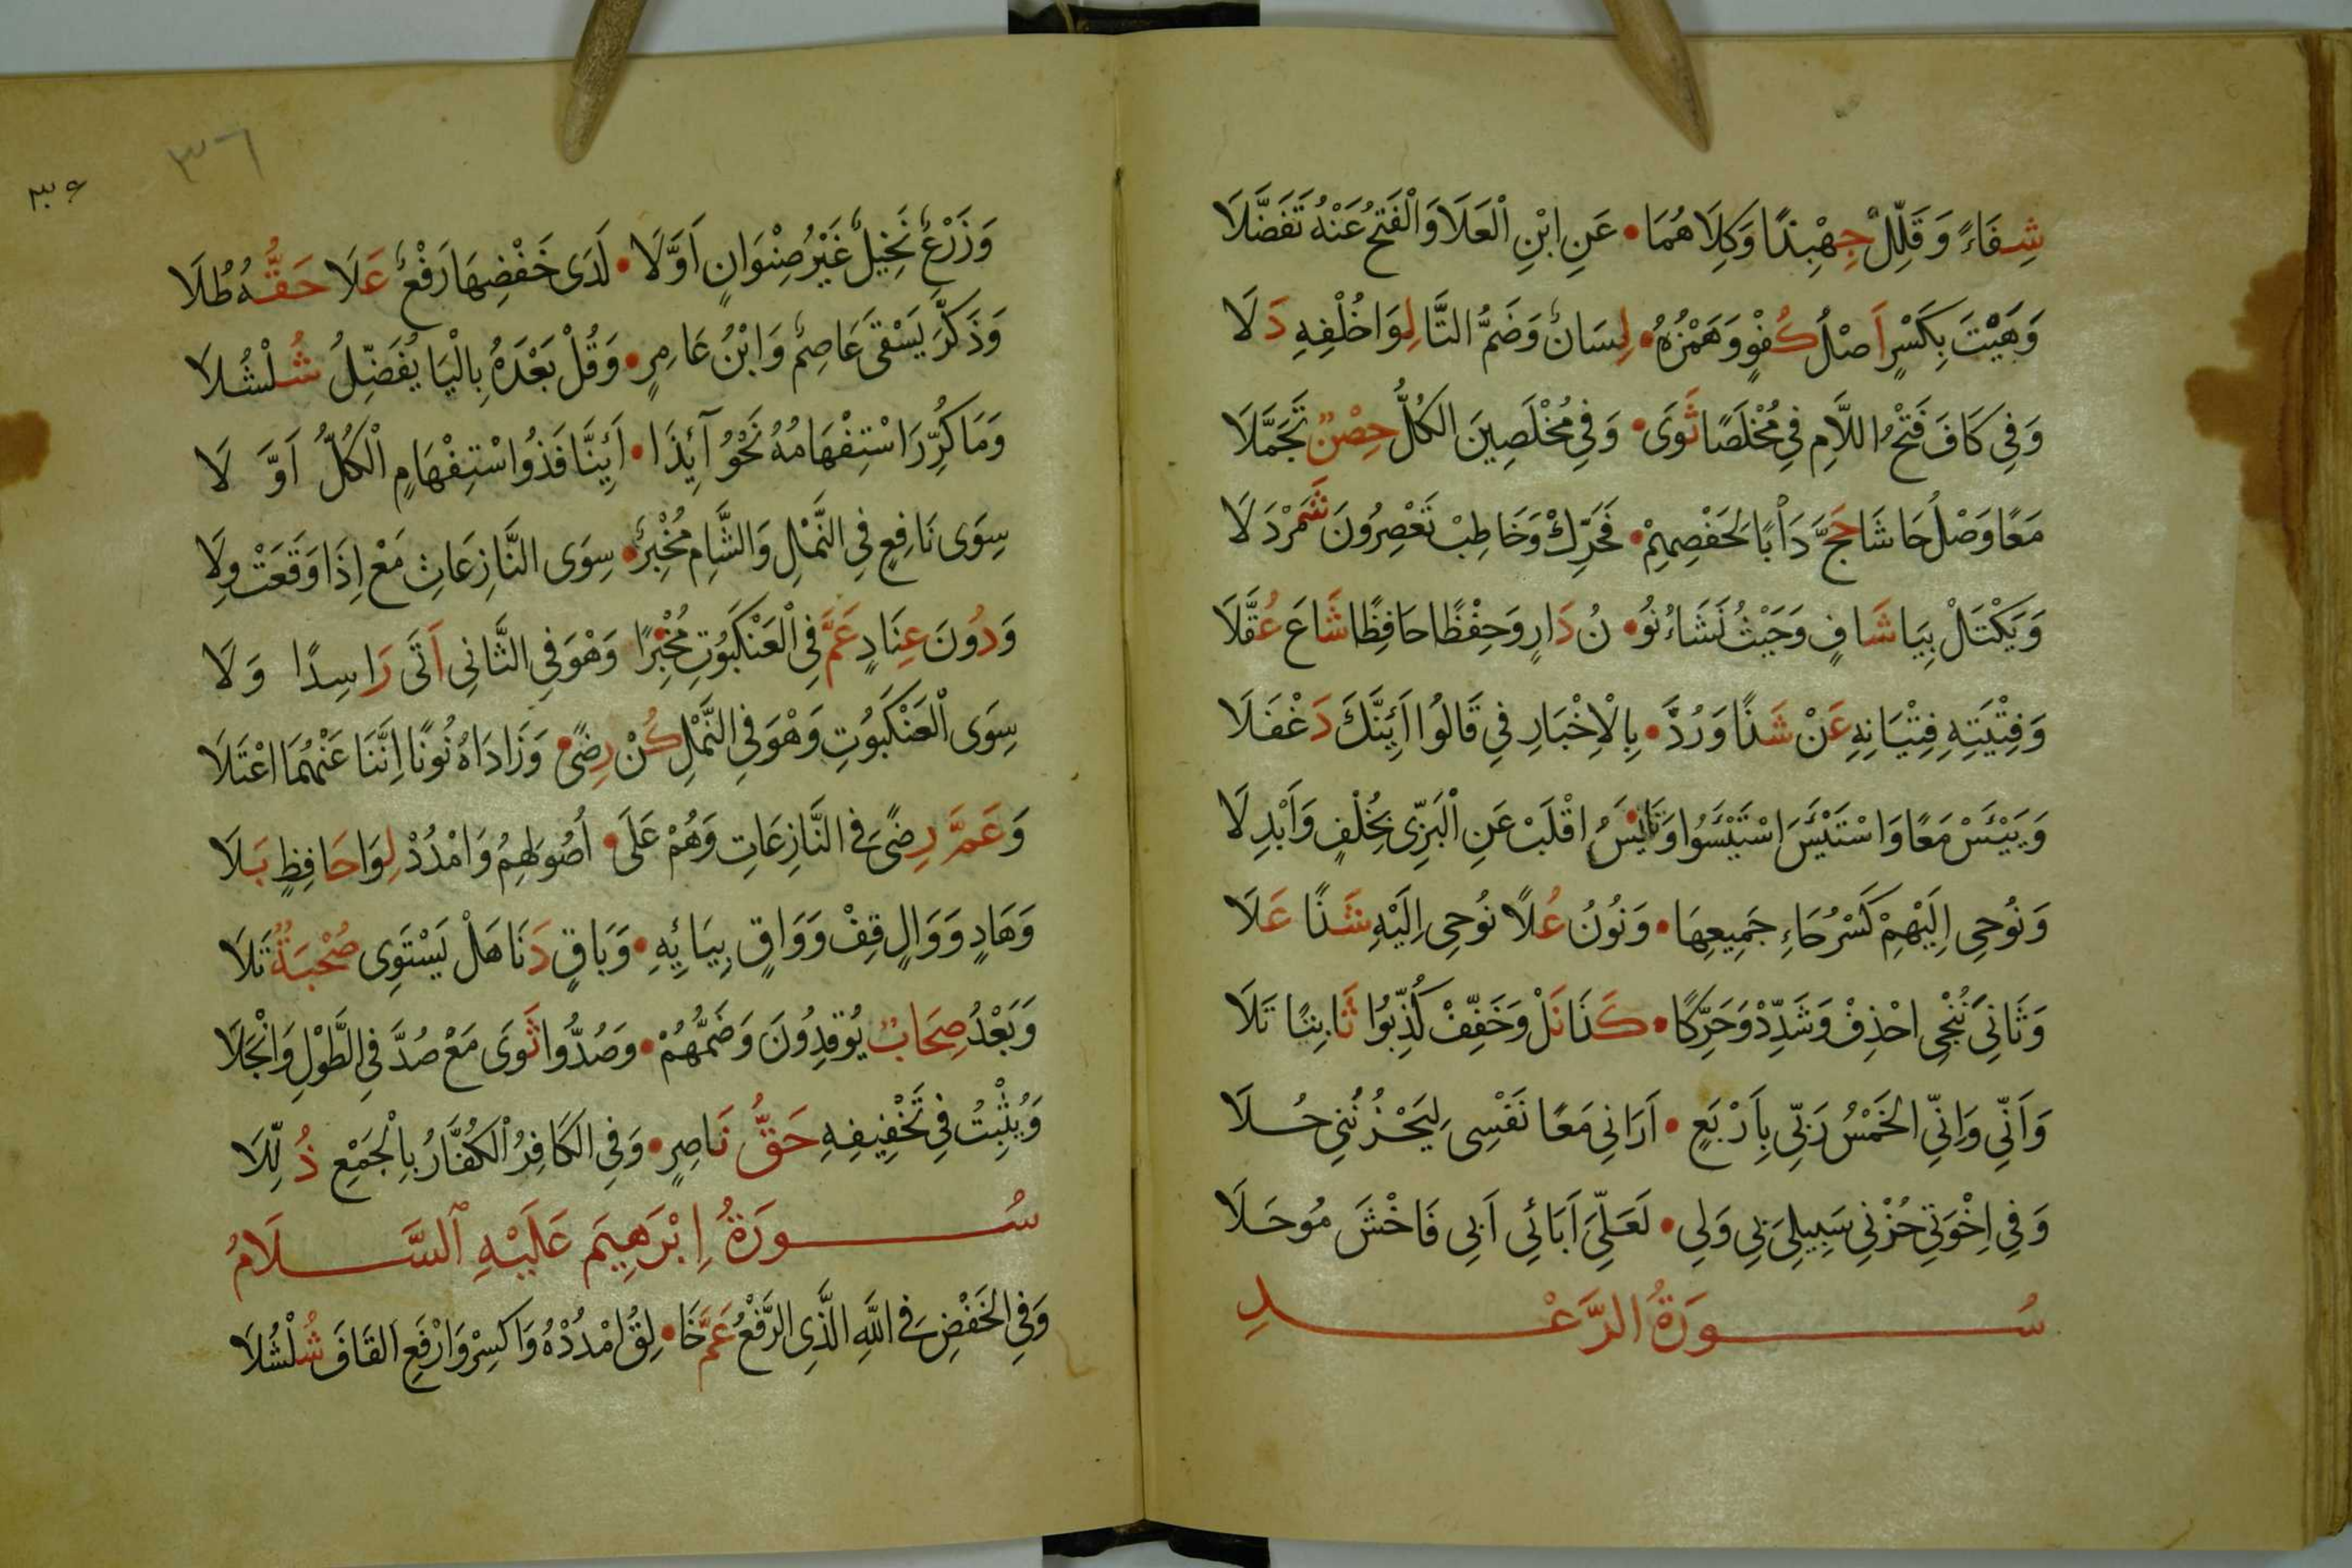 شِفَاءً وَقَلِّلْ جِهْبِذًا وَكِلَاهُمَا • عَنِ ابْنِ الْعَلَا وَالْفَتْحُ عَنْهُ تَفَضَّلَا
وَهَيْتَ بِكَسْرٍ اَصْلُ كُفْوٍ وَهَمْزُهُ • لِسَانٌ وَضَمُّ التَّا لِوَا خُلْفِهِ دَلَا
وَفِي كَافَ فَتْحُ اللَّامِ فِي مُخْلَصًا ثَوَى • وَفِي مُخْلَصِينَ الكُلُّ حِصْنٌ تَجَمَّلَا
مَعًا وَصْلُ حَاشَا حَجَّ دَأْبًا لِحَفْصِهِمْ • فَحَرِّكْ وَخَاطِبْ تَعْصِرُونَ شَمَرْدَلَا
وَيَكْتَلْ بِيَا شَافٍ وَحَيْثُ نَشَاءُ نُو • نُ دَارٍ وَحِفْظًا حَافِظًا شَاعَ عُقَّلَا
وَفِتْيَتِهِ فِتْيَانِهِ عَنْ شَذًا وَرُدَّ • بِالْاِخْبَارِ فِي قَالُوا اَئِنَّكَ دَغْفَلَا
وَيَيْئَسْ مَعًا وَاسْتَيْئَسَ اسْتَيْئَسُوا وَتَايْئَسُ اقْلَبْ عَنِ الْبَزِّى بِخُلْفٍ وَاَبْدِلَا
وَنُوحِى اِلَيْهِمْ كَسْرُ حَاءِ جَمِيعِهَا • وَنُونُ عُلًا نُوحِى اِلَيْهِ شَذًا عَلَا
وَثَانِيَ نُنْجِى احْذِفْ وَشَدِّدْ وَحَرِّكًا • كَذَا نَلْ وَخَفِّفْ كُذِّبُوا ثَابِتًا تَلَا
وَاَنِّى وَاِنِّى الخَمْسُ رَبِّى بِاَرْبَعٍ • اَرَانِى مَعًا نَفْسِى لِيَحْزُنُنِى حُلَا
وَفِى اِخْوَتِى حُزْنِى سَبِيلِىَ بِى وَلِى • لَعَلِّىَ اَبَائِى اَبِى فَاخْشَ مُوحَلَا
سُورَةُ الرَّعْدِ
٣٦
٣٦
وَزَرْعٌ نَخِيلٌ غَيْرُ صِنْوَانٍ اَوَّلَا • لَدَى خَفْضِهَا رَفْعٌ عَلَا حَقُّهُ طُلَا
وَذَكَّرَ يَسْقَى عَاصِمٌ وَابْنُ عَامِرٍ • وَقُلْ بَعْدَهُ بِالْيَا يُفَضِّلُ شُلْشُلَا
وَمَا كُرِّرَ اسْتِفْهَامُهُ نَحْوُ آئِذَا • اَئِنَّا فَذُو اسْتِفْهَامٍ الْكُلُّ اَوَّلَا
سِوَى نَافِعٍ فِى النَّمْلِ وَالشَّامِ مُخْبِرٌ • سِوَى النَّازِعَاتِ مَعْ اِذَا وَقَعَتْ وِلَا
وَدُونَ عِنَادٍ عَمَّ فِى الْعَنْكَبُوتِ مُخْبِرًا • وَهْوَ فِى الثَّانِى اَتَى رَاسِدًا وَلَا
سِوَى الْعَنْكَبُوتِ وَهْوَ فِى النَّمْلِ كُنْ رِضًى • وَزَادَاهُ نُونًا اِنَّنَا عَنْهُمَا اعْتَلَا
وَعَمَّ رِضًى فِى النَّازِعَاتِ وَهُمْ عَلَى • اُصُولِهِمْ وَامْدُدْ لِوَا حَافِظٍ بَلَا
وَهَادٍ وَوَالٍ قِفْ وَوَاقٍ بِيَائِهِ • وَبَاقٍ دَنَا هَلْ يَسْتَوِى صُحْبَةٌ تَلَا
وَبَعْدُ صِحَابٌ يُوقِدُونَ وَضَمُّهُمْ • وَصُدُّوا ثَوَى مَعْ صُدَّ فِى الطَّوْلِ وَانْجَلَا
وَيُثْبِتُ فِى تَخْفِيفِهِ حَقُّ نَاصِرٍ • وَفِى الكَافِرُ الْكُفَّارُ بِالْجَمْعِ ذُلِّلَا
سُورَةُ اِبْرَهِيمَ عَلَيْهِ ٱلسَّلَامُ
وَفِى الخَفْضِ فِى اللَّهِ الَّذِى الرَّفْعُ عَمَّ خَا • لِقُ امْدُدْهُ وَاكْسِرْ وَارْفَعِ القَافَ شُلْشُلَا